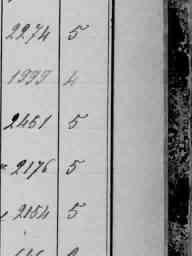 2274 5
1999 4
2451 5
2176 5
2154 5